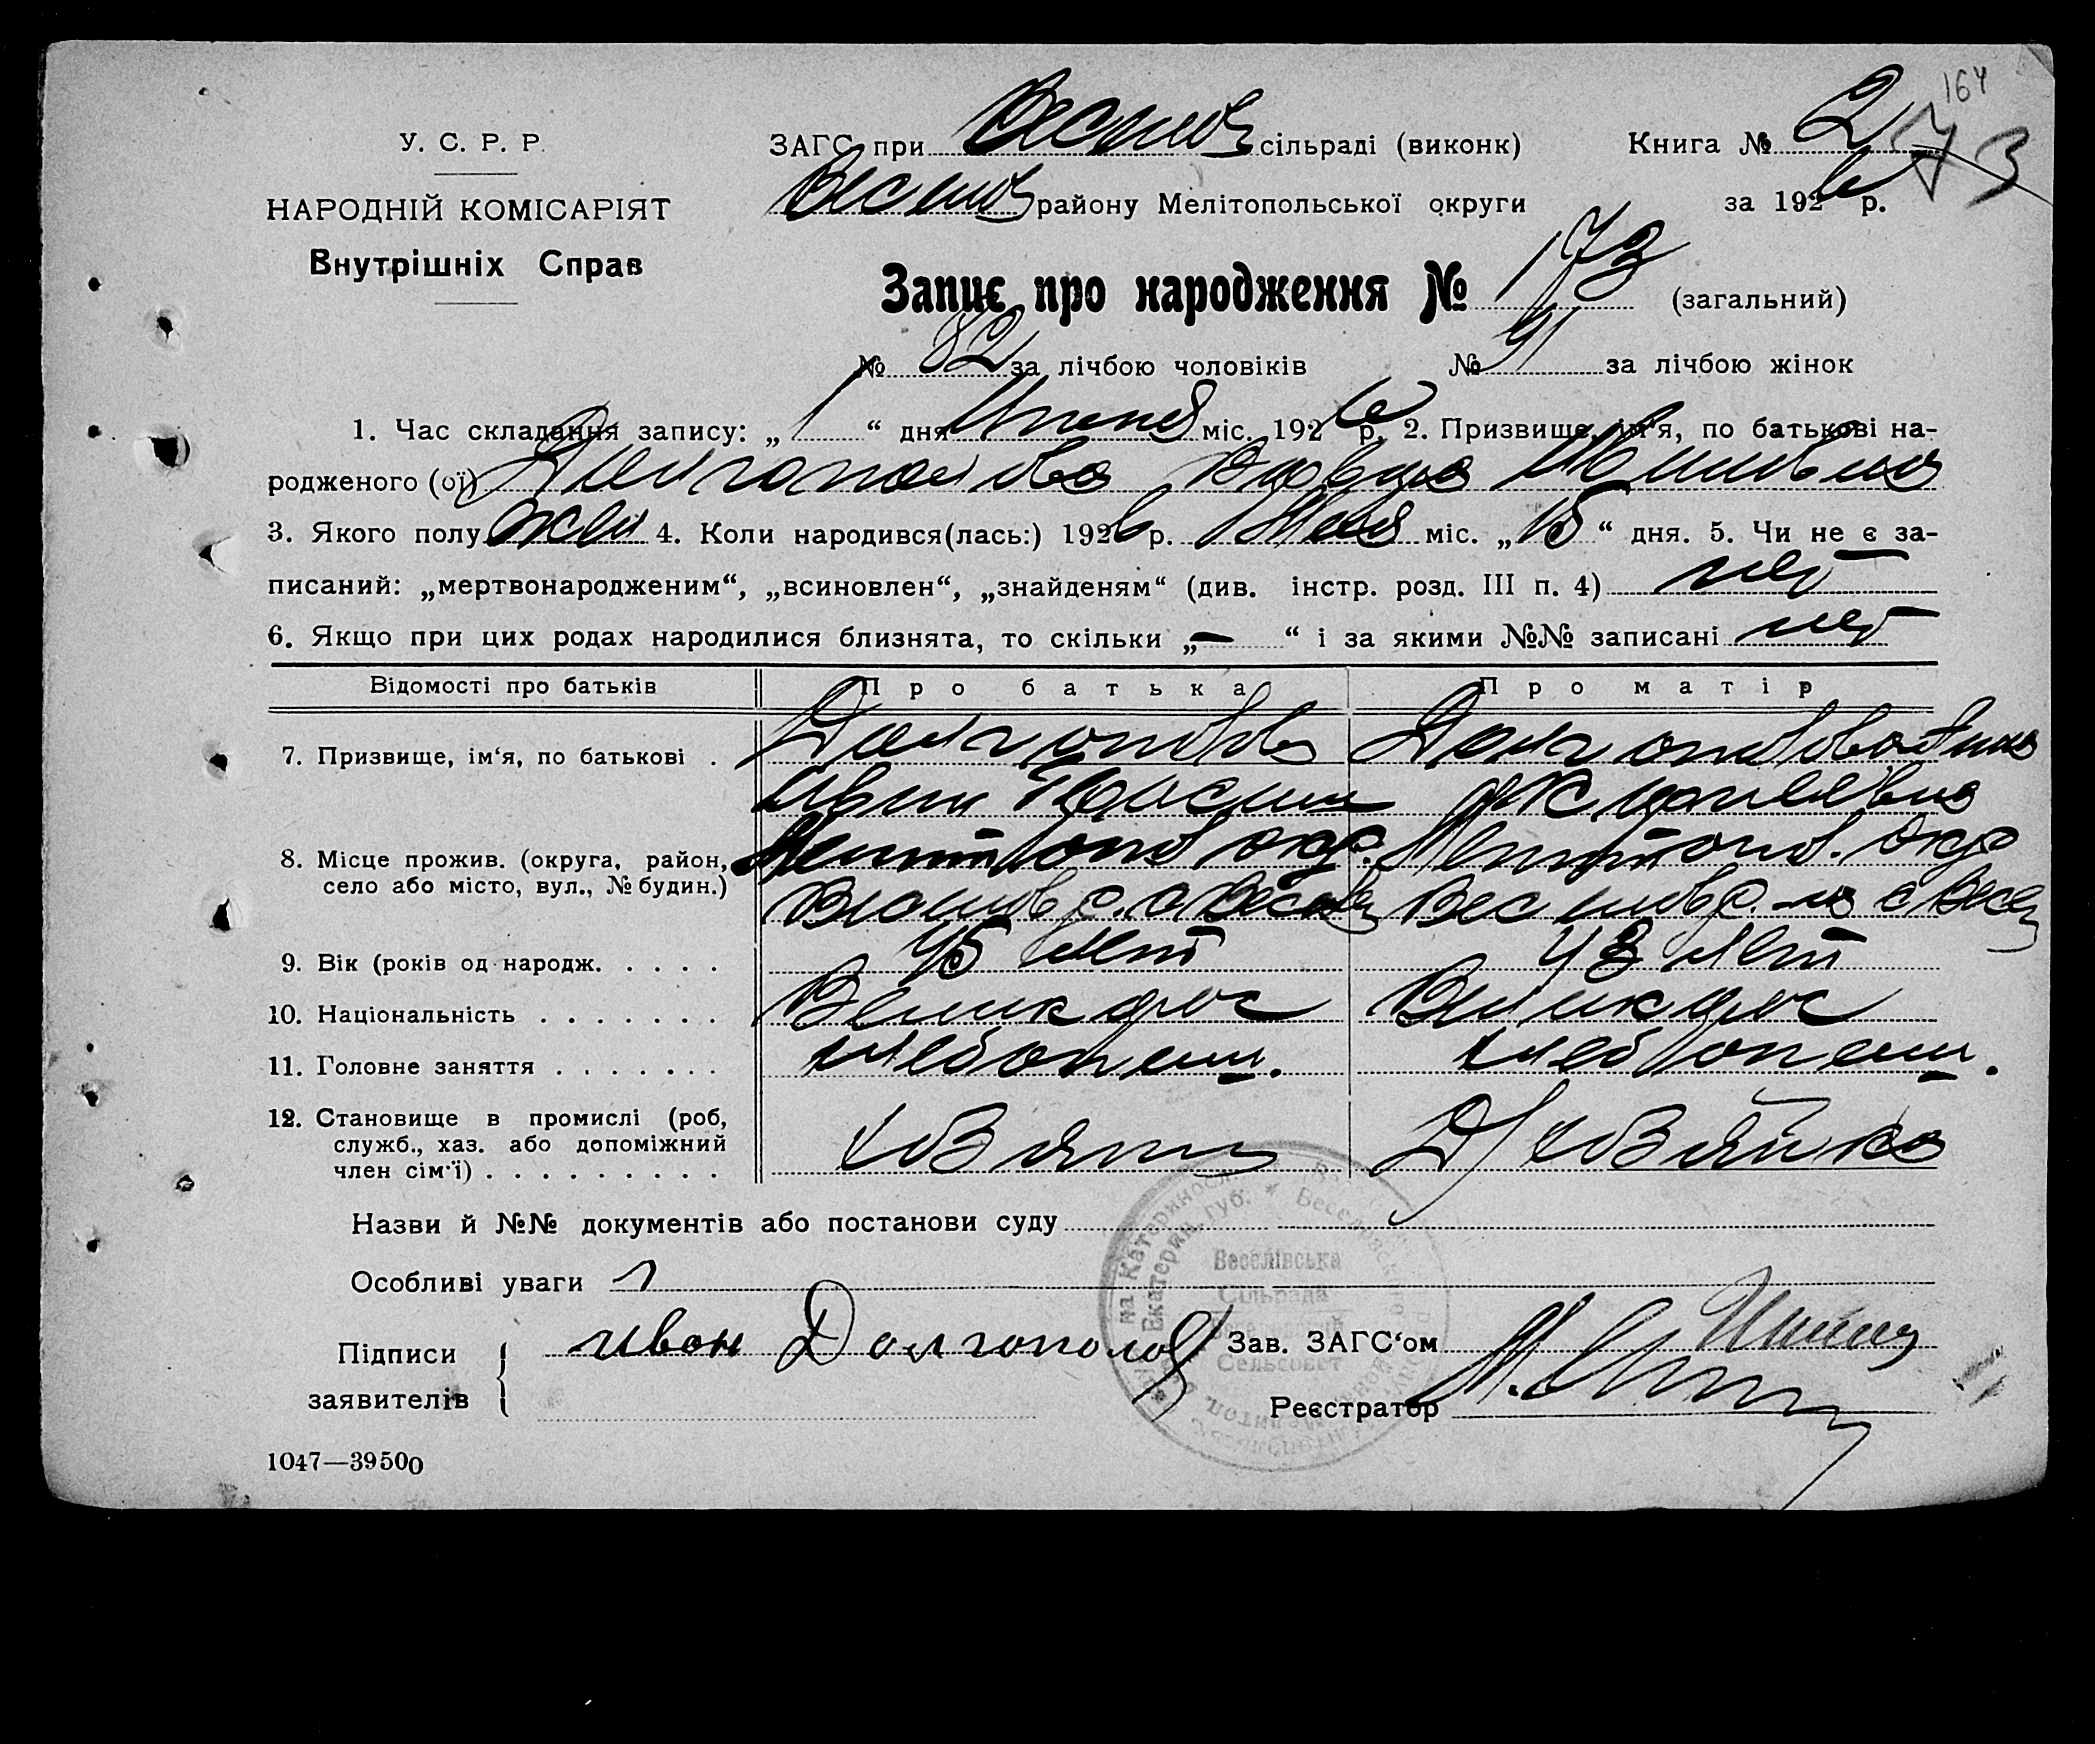 164
У. С. Р. Р.
НАРОДНІЙ КОМІСАРІЯТ
Внутрішніх Справ
ЗАГС при Весел сільраді (виконк)
Книга № 2
73
Весел району Мелітопольської округи
за 1926 р.
Запис про народження № 173 (загальний)
№ 82 за лічбою чоловіків № 91 за лічбою жінок
1. Час складання запису: „ 1 “ дня Июня міс. 1926 р. 2. Призвище, ім‘я, по батькові на-
родженого (ої) Долгополова Ивановна
3. Якого полу жен 4. Коли народився(лась:) 1926 р. Мая міс. „ 15 “ дня. 5. Чи не є за-
писаний: „мертвонародженим“, „всиновлен“, „знайденям“ (див. інстр. розд. III п. 4) нет
6. Якщо при цих родах народилися близнята, то скільки „ — “ і за якими №№ записані нет
Відомості про батьків Про батька Про матір
7. Призвище, ім‘я, по батькові . Долгополов Долгополова Анна
Иван
8. Місце прожив. (округа, район, Мелитопол окр. Мелитопол. окр
село або місто, вул., № будин.)
9. Вік (років од народж. . . . . 45 лет 43 лет
10. Національність . . . . . . . Великорос Великорос
11. Головне заняття . . . . . . . хлебопаш. хлебопаш.
12. Становище в промислі (роб,
служб., хаз. або допоміжний
член сім‘ї) . . . . . . . . . хозяин Д/хозяйка
Назви й №№ документів або постанови суду
Особливі уваги
Підписи заявителів
Иван Долгополов
Зав. ЗАГС‘ом
Реєстратор
Веселівська
Сільрада
Сельсовет
1047—39500